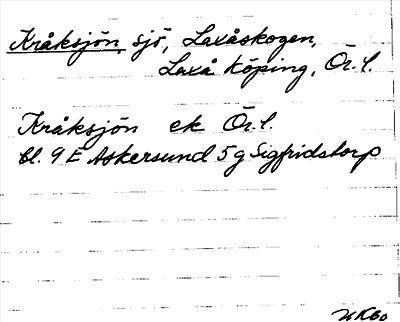 Kråksjön, sjö, Laxåskogen,
Laxå köping, Ör. l.
Kråksjön ek Ör. l.
bl. 9 E Askersund 5 g Sigfridstorp